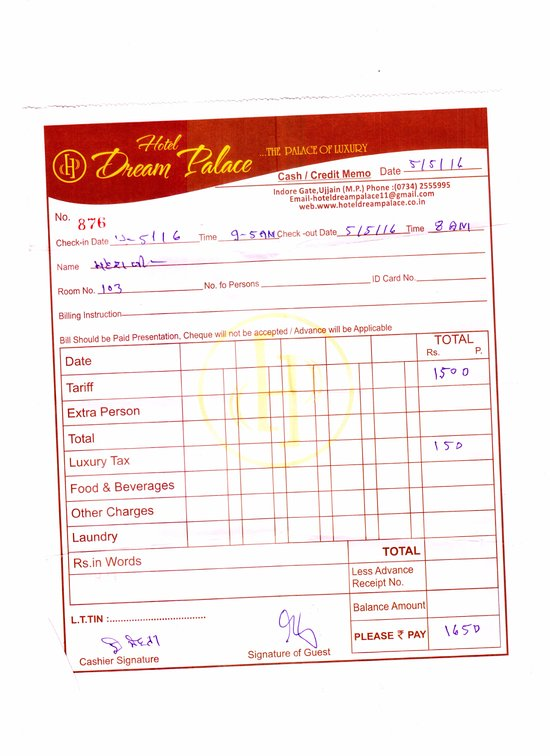 Hotel
Dream Palace ...THE PALACE OF LUXURY
Cash / Credit Memo Date 5/5/16
Indore Gate,Ujjain (M.P.) Phone :(0734) 2555995
Email-hoteldreampalace11@gmail.com
web.www.hoteldreampalace.co.in
No. 876
Check-in Date 5/16 Time 9-5AM Check -out Date 5/5/16 Time 8 AM
Name
Room No. 103 No. fo Persons ID Card No.
Billing Instruction
Bill Should be Paid Presentation, Cheque will not be accepted / Advance will be Applicable
Date TOTAL
Rs. P.
Tariff 1500
Extra Person
Total
Luxury Tax 150
Food & Beverages
Other Charges
Laundry
Rs.in Words TOTAL
Less Advance
Receipt No.
Balance Amount
L.T.TIN :
PLEASE ₹ PAY 1650
Cashier Signature Signature of Guest